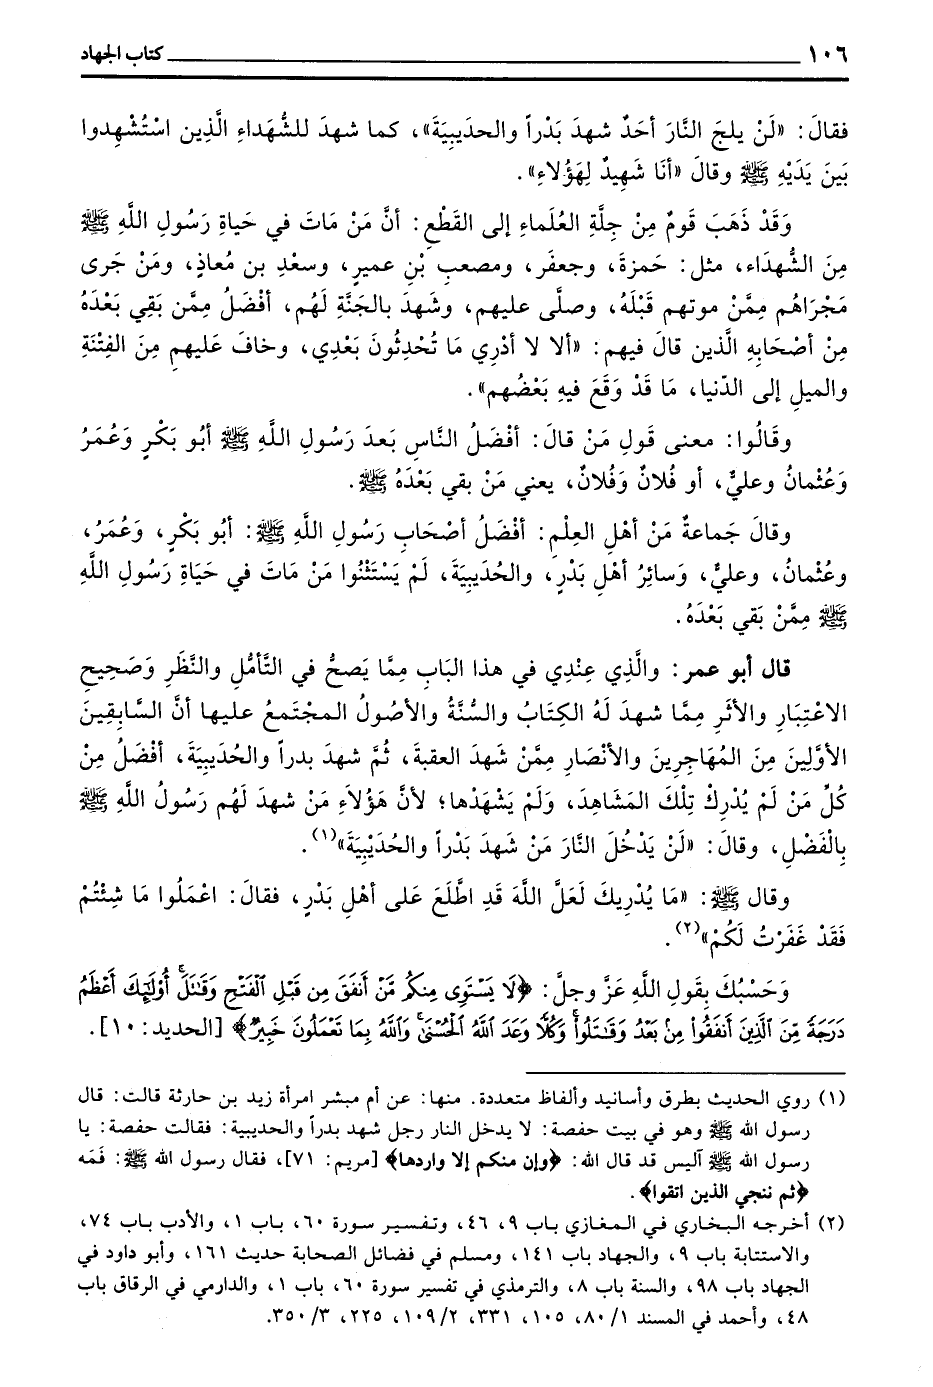 ١٠٦ كتاب الجهاد
فقالَ: «لَنْ يلجَ النَّارَ أحَدٌ شهدَ بَدْراً والحديبيَةَ»، كما شهدَ للشُّهَداءِ الَّذِين اسْتُشْهِدوا
بَينَ يَدَيْهِ ﷺ وقالَ «أنَا شَهِيدٌ لِهَؤُلاءِ».
وَقَدْ ذَهَبَ قَومٌ مِنْ جِلَّةِ العُلَماءِ إلى القَطْعِ: أنَّ مَنْ مَاتَ في حَياةِ رَسُولِ اللَّهِ ﷺ
مِنَ الشُّهدَاء، مثل: حَمزةَ، وجعفَر، ومصعبِ بْنِ عميرٍ، وسعْدِ بن مُعاذٍ، ومَنْ جَرى
مَجْرَاهُم مِمَّنْ موتهم قَبْلَهُ، وصلَّى عليهم، وشَهدَ بالجَنَّةِ لَهُم، أفْضَلُ مِمَّن بَقِي بَعْدَهُ
مِنْ أصْحَابِهِ الَّذين قالَ فيهم: «ألا لا أدْرِي مَا تُحْدِثُونَ بَعْدِي، وخافَ عَليهم مِنَ الفِتْنَةِ
والميلِ إلى الدّنيا، مَا قَدْ وَقَعَ فيهِ بَعْضُهم».
وقَالُوا: معنى قَولِ مَنْ قالَ: أفْضَلُ النَّاسِ بَعدَ رَسُولِ اللَّهِ ﷺ أبُو بَكْرٍ وَعُمَرُ
وَعُثْمانُ وعليٌّ، أو فُلانٌ وَفُلانٌ، يعني مَنْ بقي بَعْدَهُ ﷺ.
وقالَ جَماعةٌ مَنْ أهْلِ العِلْمِ: أفْضَلُ أصْحَابِ رَسُولِ اللَّهِ ﷺ: أبُو بَكْرٍ، وَعُمَرُ،
وعُثْمانُ، وعليٌّ، وَسائِرُ أهْلِ بَدْرٍ، والحُدَيبِيَةَ، لَمْ يَسْتَثْنُوا مَنْ مَاتَ في حَيَاةِ رَسُولِ اللَّهِ
ﷺ مِمَّنْ بَقي بَعْدَهُ.
قال أبو عمر: والَّذِي عِنْدِي في هذا البَابِ مِمَّا يَصحُّ في التَّأمُّلِ والنَّظَرِ وَصَحِيحِ
الاعْتِبَارِ والأثَرِ مِمَّا شهدَ لَهُ الكِتَابُ والسُّنَّةُ والأصُولُ المجْتَمعُ عليها أنَّ السَّابِقِينَ
الأوَّلِينَ مِنَ المُهَاجِرِينَ والأنْصَارِ مِمَّنْ شَهدَ العقبةَ، ثُمَّ شَهدَ بدراً والحُدَيبِيَةَ، أفْضَلُ مِنْ
كُلِّ مَنْ لَمْ يُدْرِكْ تِلْكَ المَشَاهِدَ، وَلَمْ يَشْهَدْها؛ لأنَّ هَؤُلاَءِ مَنْ شهدَ لَهُم رَسُولُ اللَّهِ ﷺ
بِالْفَضْلِ، وقالَ: «لَنْ يَدْخُلَ النَّارَ مَنْ شَهدَ بَدْراً والحُدَيْبِيَةَ»(١).
وقال ﷺ: «مَا يُدْرِيكَ لَعَلَّ اللَّهَ قَدِ اطَّلَعَ عَلى أهْلِ بَدْرٍ، فقالَ: اعْمَلُوا مَا شِئْتُمْ
فَقَدْ غَفَرْتُ لَكُمْ»(٢).
وَحَسْبُكَ بِقَولِ اللَّهِ عَزَّ وجلَّ: ﴿لَا يَسْتَوِى مِنكُم مَّنْ أَنفَقَ مِن قَبْلِ ٱلْفَتْحِ وَقَٰتَلَۚ أُوْلَٰٓئِكَ أَعْظَمُ
دَرَجَةً مِّنَ ٱلَّذِينَ أَنفَقُواْ مِنۢ بَعْدُ وَقَٰتَلُواْۚ وَكُلًّا وَعَدَ ٱللَّهُ ٱلْحُسْنَىٰۚ وَٱللَّهُ بِمَا تَعْمَلُونَ خَبِيرٌ﴾ [الحديد: ١٠].
(١) روي الحديث بطرق وأسانيد وألفاظ متعددة. منها: عن أم مبشر امرأة زيد بن حارثة قالت: قال
رسول الله ﷺ وهو في بيت حفصة: لا يدخل النار رجل شهد بدراً والحديبية: فقالت حفصة: يا
رسول الله ﷺ أليس قد قال الله: ﴿وإن منكم إلا واردها﴾ [مريم: ٧١]، فقال رسول الله ﷺ: فَمَه
﴿ثم ننجي الذين اتقوا﴾.
(٢) أخرجه البخاري في المغازي باب ٩، ٤٦، وتفسير سورة ٦٠، باب ١، والأدب باب ٧٤،
والاستتابة باب ٩، والجهاد باب ١٤١، ومسلم في فضائل الصحابة حديث ١٦١، وأبو داود في
الجهاد باب ٩٨، والسنة باب ٨، والترمذي في تفسير سورة ٦٠، باب ١، والدارمي في الرقاق باب
٤٨، وأحمد في المسند ٨٠/١، ١٠٥، ٣٣١، ١٠٩/٢، ٢٢٥، ٣٥٠/٣.